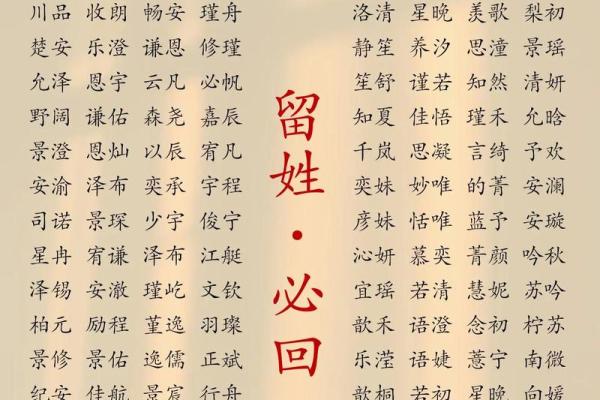 川品 收朗 畅安 瑾舟
楚安 乐澄 谦恩 修瑾
允泽 恩宇 云凡 必帆
野阔 谦佑 森尧 嘉辰
景澄 恩灿 以辰 宥凡
安渝 泽布 奕承 宇程
司诺 景琛 少宇 俊宁
星冉 宥谦 泽布 江艇
泽锡 安澈 瑾屹 文钦
柏元 励程 堇逸 羽璨
景修 景佑 逸儒 正斌
纪安 佳航 景宸 行舟
留姓·必回
洛清 星晚 羡歌 梨初
静笙 养汐 思潼 景瑶
笙舒 谨若 知然 清妍
知夏 佳悟 瑾禾 允晗
千岚 思凝 言绮 予欢
奕妹 妙唯 的菁 安澜
彦妹 恬唯 蓝予 安璇
沁妍 慕奕 菁颜 吟秋
宜瑶 若清 慧妮 苏吟
歆禾 语澄 念初 柠苏
乐滢 语婕 薏宁 南微
歆桐 若初 星晚 向媛